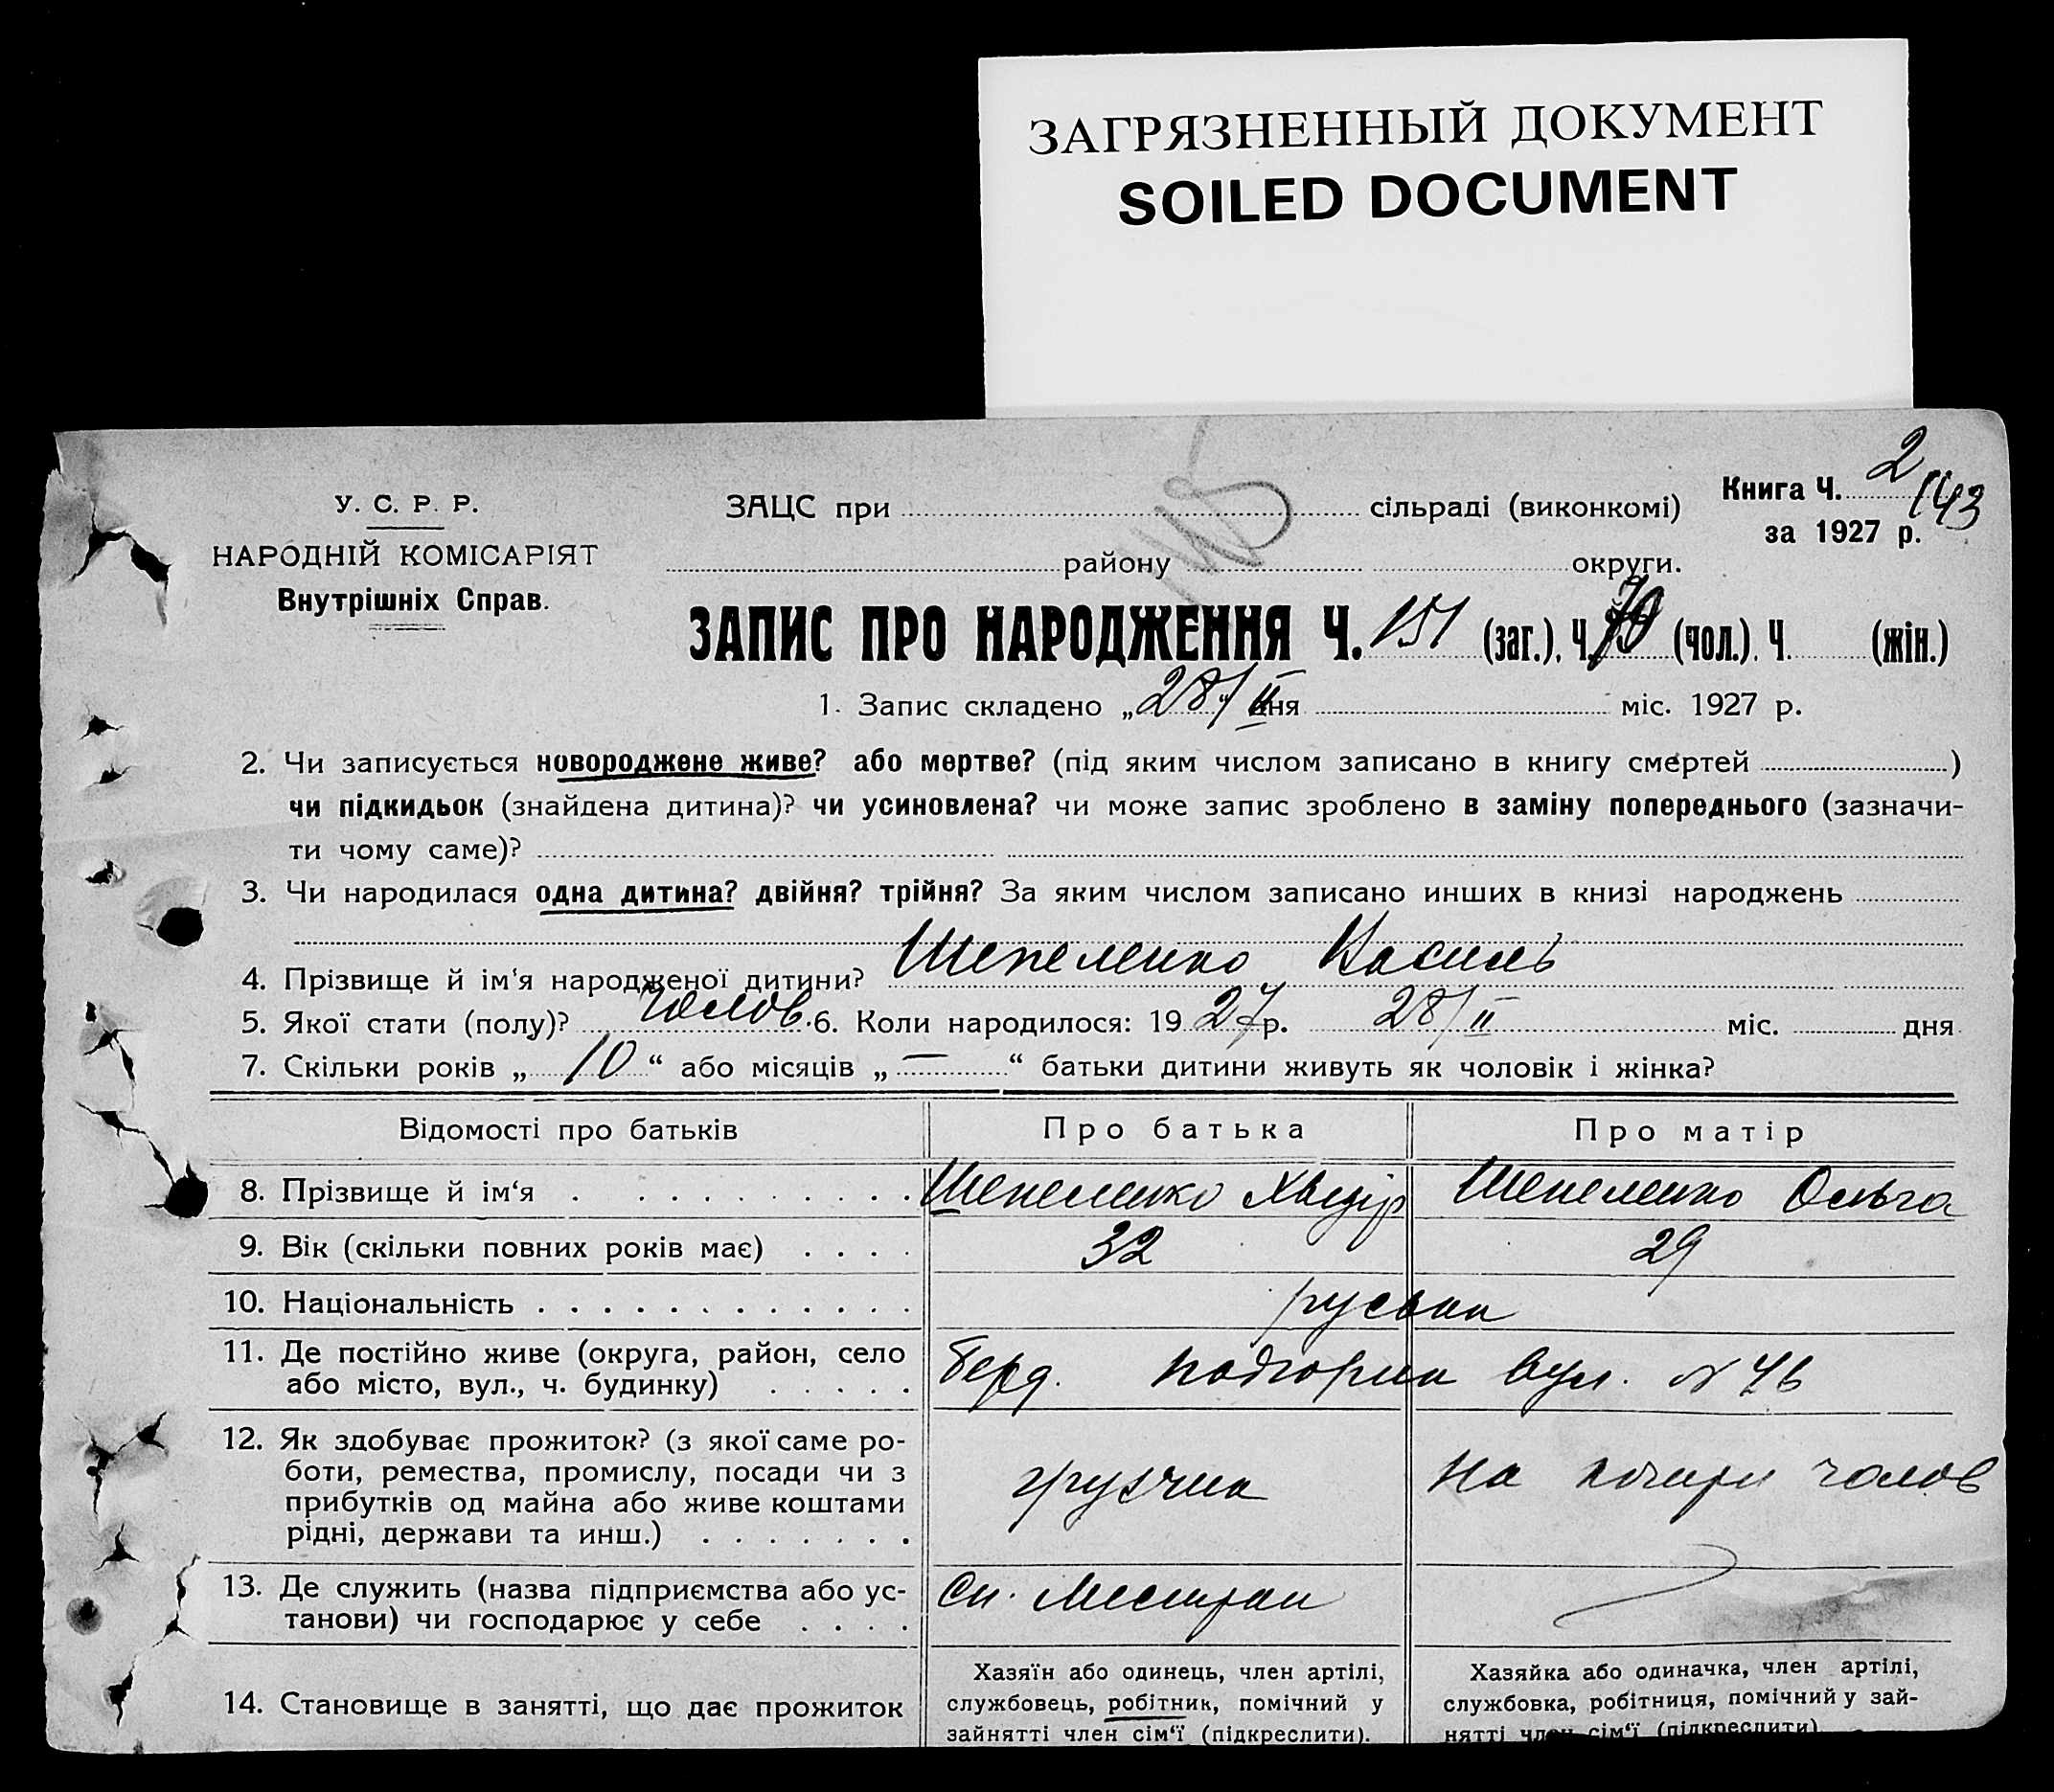 ЗАГРЯЗНЕННЫЙ ДОКУМЕНТ
SOILED DOCUMENT
145
У. С. Р. Р.
НАРОДНІЙ КОМІСАРІЯТ
Внутрішніх Справ.
ЗАЦС при сільраді (виконкомі)
району округи.
Книга Ч. 2
143
за 1927 р.
ЗАПИС ПРО НАРОДЖЕННЯ Ч. 151 (заг.), Ч. 70 (чол.), Ч. (жін.)
1. Запис складено „28/II“ дня міс. 1927 р.
2. Чи записується новороджене живе? або мертве? (під яким числом записано в книгу смертей )
чи підкидьок (знайдена дитина)? чи усиновлена? чи може запис зроблено в заміну попереднього (зазначи-
ти чому саме)?
3. Чи народилася одна дитина? двійня? трійня? За яким числом записано инших в книзі народжень
4. Прізвище й ім‘я народженої дитини? Шепеленко Василь
5. Якої стати (полу)? чолов. 6. Коли народилося: 1927 р. 28/II міс. дня
7. Скільки років „10“ або місяців „—“ батьки дитини живуть як чоловік і жінка?
Відомості про батьків Про батька Про матір
8. Прізвище й ім‘я Шепеленко Хведір Шепеленко Ольга
9. Вік (скільки повних років має) 32 29
10. Національність руськи
11. Де постійно живе (округа, район, село
або місто, вул., ч. будинку)
Берд. Подгорна вул. № 46
12. Як здобуває прожиток? (з якої саме ро-
боти, ремества, промислу, посади чи з
прибутків од майна або живе коштами
рідні, держави та инш.)
грузчик
На чолов
13. Де служить (назва підприємства або ус-
танови) чи господарює у себе
14. Становище в занятті, що дає прожиток
Хазяїн або одинець, член артілі,
службовець, робітник, помічний у
зайнятті член сім‘ї (підкреслити).
Хазяйка або одиначка, член артілі,
службовка, робітниця, помічний у зай-
нятті член сім‘ї (підкреслити)